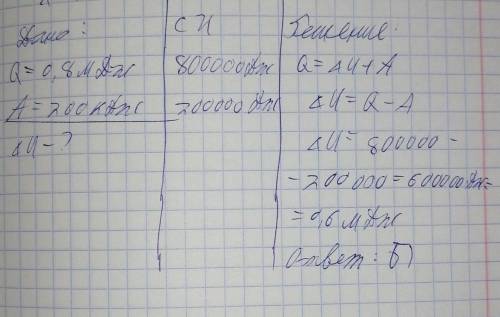 Дано:
Q = 0,8 МДж
A = 200 кДж
ΔU - ?
СИ
800000 Дж
200000 Дж
Решение:
Q = ΔU + A
ΔU = Q - A
ΔU = 800000 -
- 200 000 = 600000 Дж =
= 0,6 МДж
Ответ: Б)